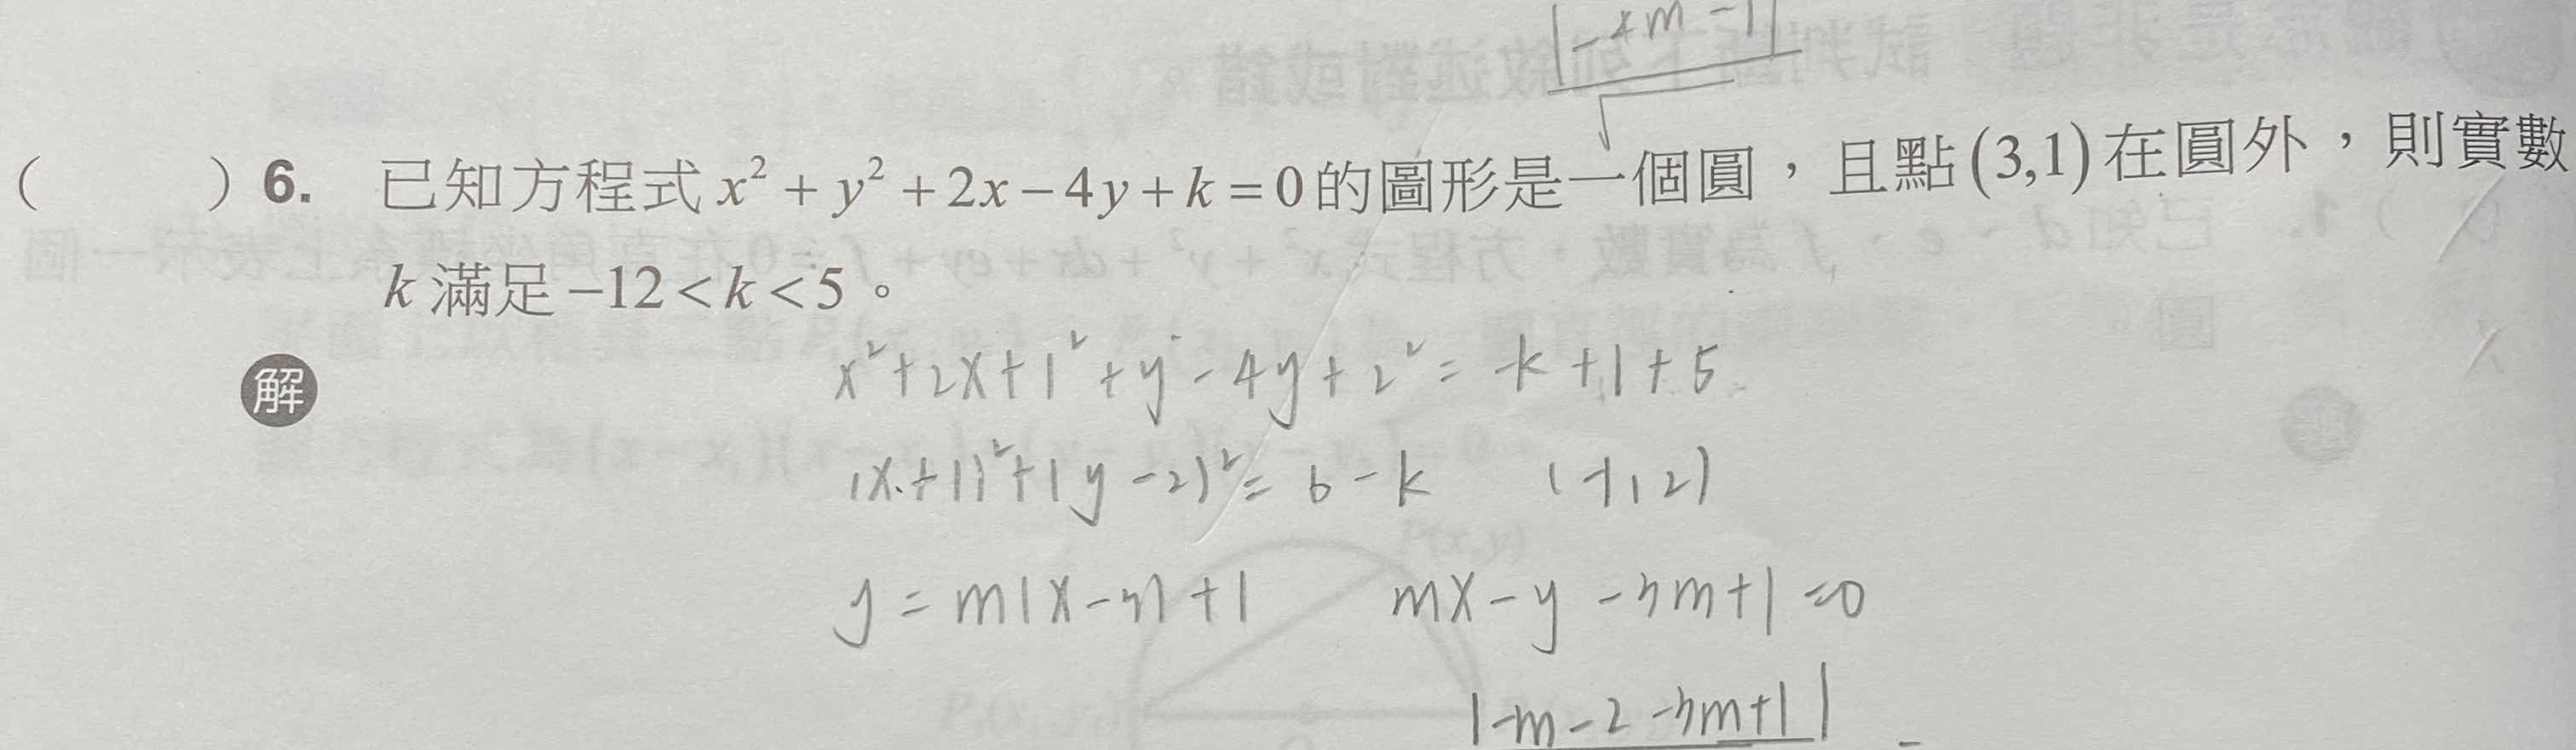 |-4m-1|
( ) 6. 已知方程式 x² + y² + 2x − 4y + k = 0 的圖形是一個圓，且點 (3,1) 在圓外，則實數
k 滿足 −12 < k < 5。
解
x² + 2x + 1² + y² - 4y + 2² = -k + 1 + 5
(x+1)² + (y-2)² = 6 - k (-1, 2)
y = m(x-3) + 1 mx - y - 3m + 1 = 0
|-m-2-3m+1|